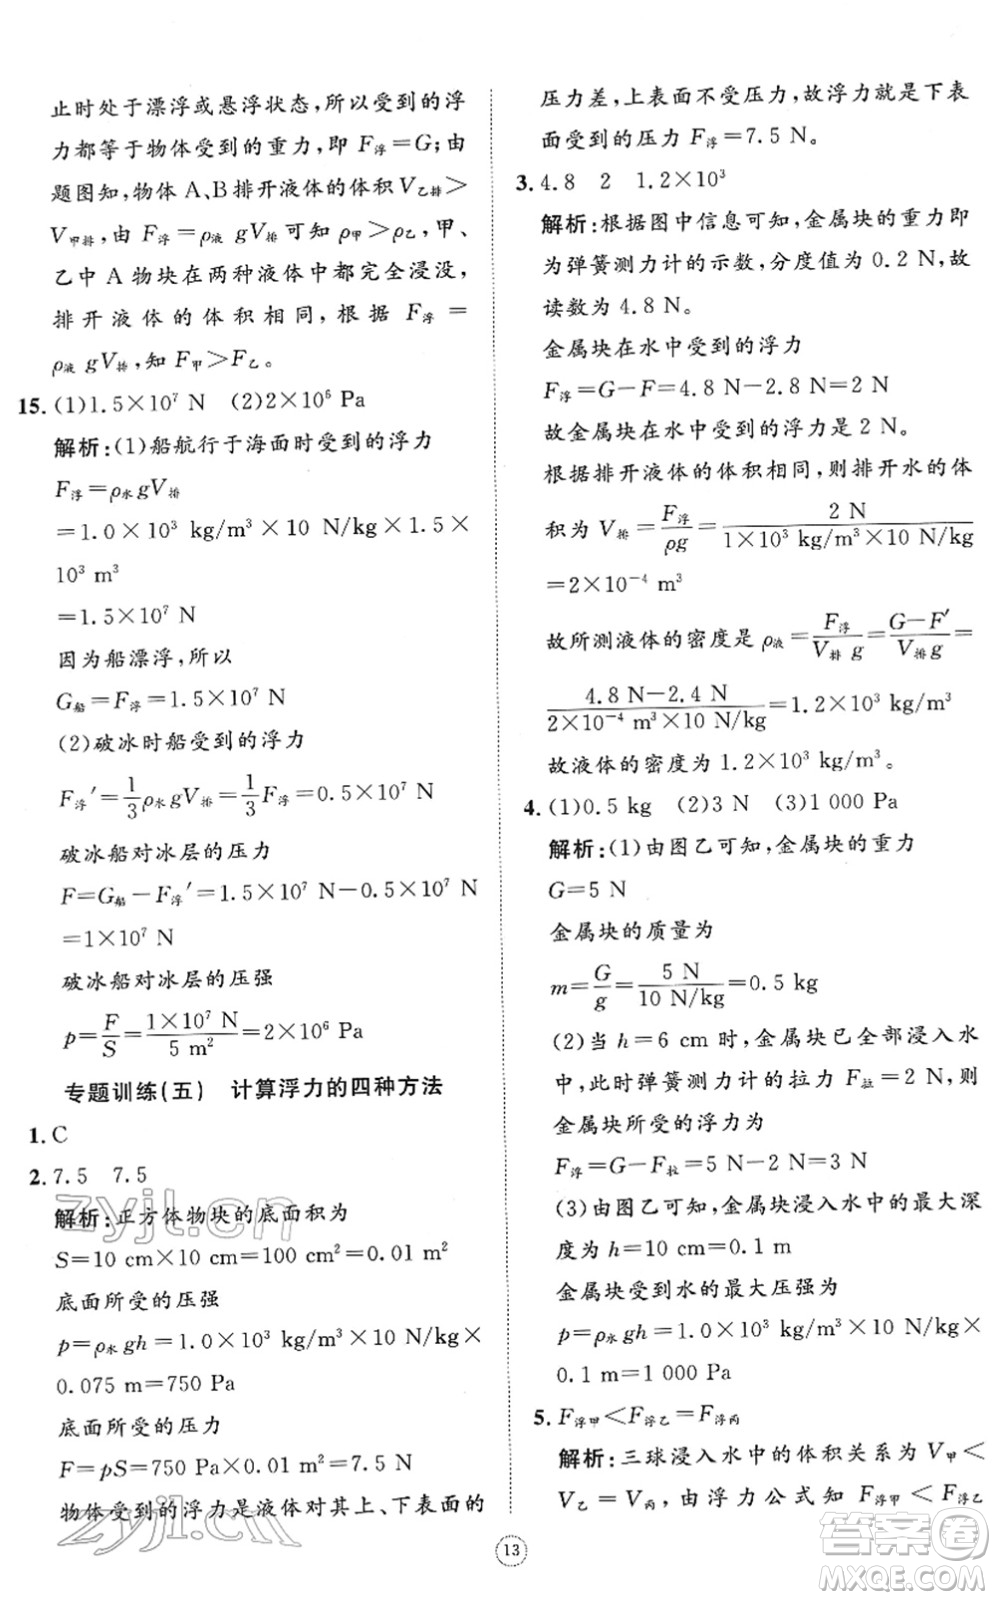 止时处于漂浮或悬浮状态,所以受到的浮
力都等于物体受到的重力,即 F浮=G;由
题图知,物体 A、B排开液体的体积 V乙排>
V甲排,由 F浮=ρ液 gV排 可知 ρ甲>ρ乙,甲、
乙中 A 物块在两种液体中都完全浸没,
排开液体的体积相同,根据 F浮=
ρ液 gV排,知 F甲>F乙。
15.(1)1.5×10⁷ N (2)2×10⁶ Pa
解析:(1)船航行于海面时受到的浮力
F浮=ρ水 gV排
=1.0×10³ kg/m³×10 N/kg×1.5×
10³ m³
=1.5×10⁷ N
因为船漂浮,所以
G船=F浮=1.5×10⁷ N
(2)破冰时船受到的浮力
F浮′=1/3ρ水 gV排=1/3F浮=0.5×10⁷ N
破冰船对冰层的压力
F=G船−F浮′=1.5×10⁷ N−0.5×10⁷ N
=1×10⁷ N
破冰船对冰层的压强
p=F/S=1×10⁷ N/5 m²=2×10⁶ Pa
专题训练(五) 计算浮力的四种方法
1.C
2.7.5 7.5
解析:正方体物块的底面积为
S=10 cm×10 cm=100 cm²=0.01 m²
底面所受的压强
p=ρ水 gh=1.0×10³ kg/m³×10 N/kg×
0.075 m=750 Pa
底面所受的压力
F=pS=750 Pa×0.01 m²=7.5 N
物体受到的浮力是液体对其上、下表面的
压力差,上表面不受压力,故浮力就是下表
面受到的压力 F浮=7.5 N。
3.4.8 2 1.2×10³
解析:根据图中信息可知,金属块的重力即
为弹簧测力计的示数,分度值为 0.2 N,故
读数为 4.8 N。
金属块在水中受到的浮力
F浮=G−F=4.8 N−2.8 N=2 N
故金属块在水中受到的浮力为 2 N。
根据排开液体的体积相同,则排开水的体
积为 V排=F浮/ρg=2 N/1×10³ kg/m³×10 N/kg
=2×10⁻⁴ m³
故所测液体的密度是 ρ液=F浮/V排 g=G−F′/V排 g=
4.8 N−2.4 N/2×10⁻⁴ m³×10 N/kg=1.2×10³ kg/m³
故液体的密度为 1.2×10³ kg/m³。
4.(1)0.5 kg (2)3 N (3)1 000 Pa
解析:(1)由图乙可知,金属块的重力
G=5 N
金属块的质量为
m=G/g=5 N/10 N/kg=0.5 kg
(2)当 h=6 cm 时,金属块已全部浸入水
中,此时弹簧测力计的拉力 F拉=2 N,则
金属块所受的浮力为
F浮=G−F拉=5 N−2 N=3 N
(3)由图乙可知,金属块浸入水中的最大深
度为 h=10 cm=0.1 m
金属块受到水的最大压强为
p=ρ水 gh=1.0×10³ kg/m³×10 N/kg×
0.1 m=1 000 Pa
5. F浮甲<F浮乙=F浮丙
解析:三球浸入水中的体积关系为 V甲<
V乙=V丙,由浮力公式知 F浮甲<F浮乙
13
zyjl.cn
zyjl.cn
答案圈
MXQE.COM